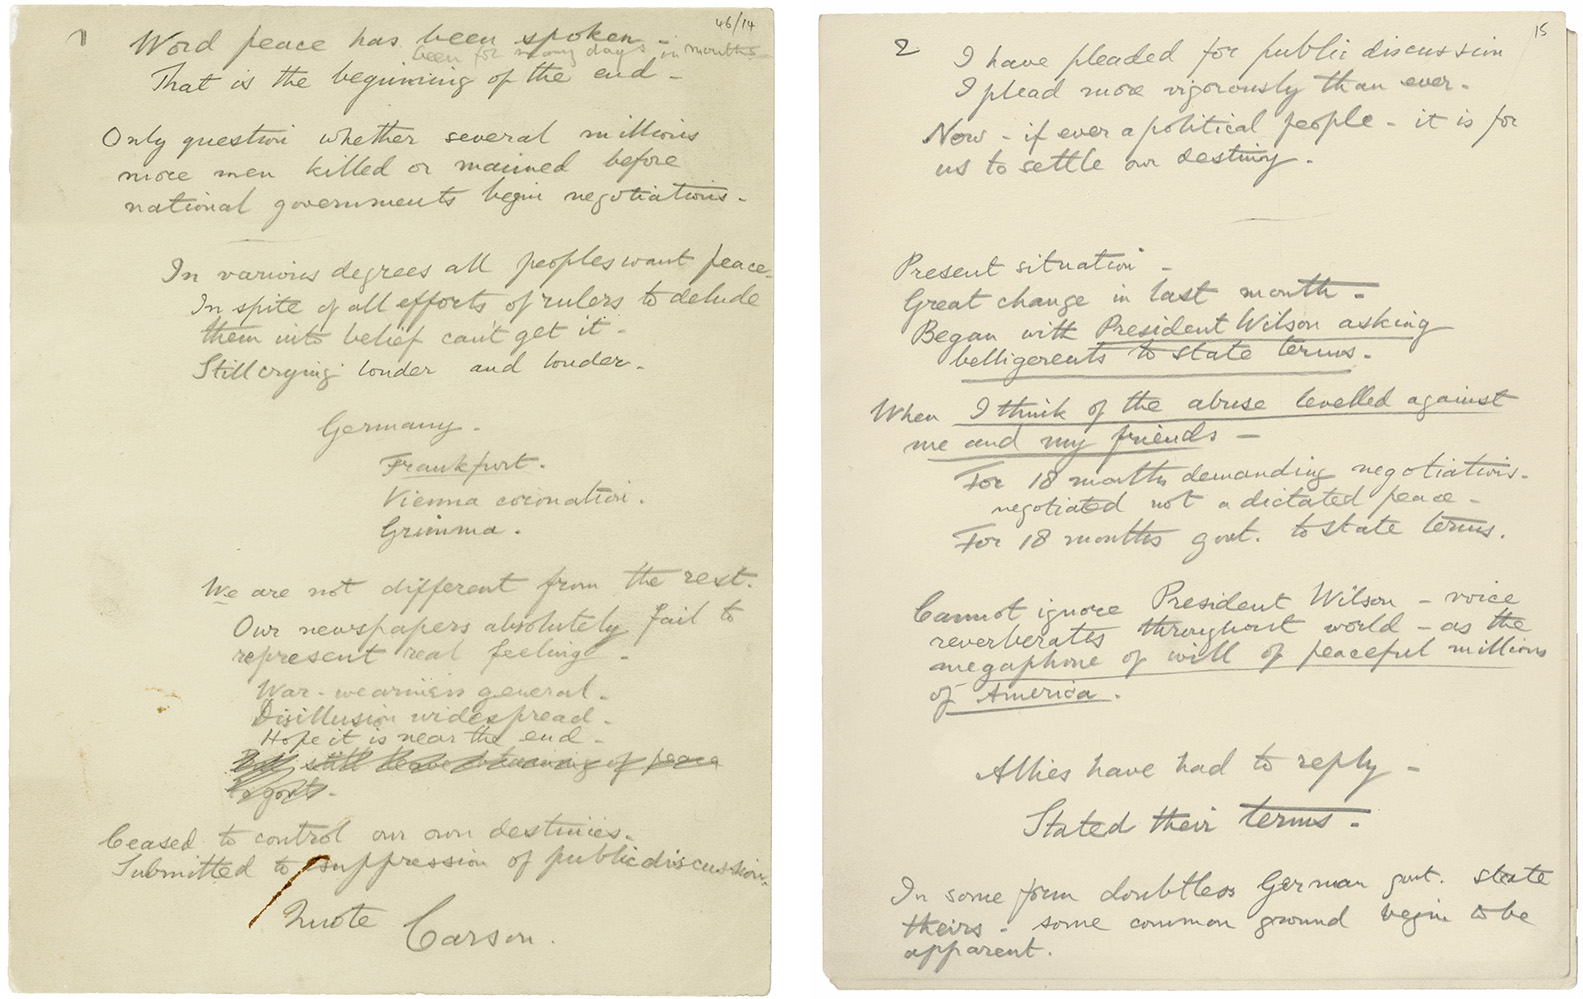 46/14
1 Word peace has been spoken -
been for many days - in months
That is the beginning of the end -
Only question whether several millions
more men killed or maimed before
national governments begin negotiations -
In various degrees all peoples want peace -
In spite of all efforts of rulers to delude
them into belief can't get it -
Still crying louder and louder -
Germany -
Frankfurt.
Vienna coronation.
Grimma.
We are not different from the rest.
Our newspapers absolutely fail to
represent real feeling -
War-weariness general -
Disillusion widespread -
Hope it is near the end -
still of peace
Ceased to control our own destinies -
Submitted to suppression of public discussion.
Quote Carson.
15
2 I have pleaded for public discussion
I plead more vigorously than ever -
Now - if ever a political people - it is for
us to settle our destiny.
Present situation -
Great change in last month -
Began with President Wilson asking
belligerents to state terms.
When I think of the abuse levelled against
me and my friends -
For 18 months demanding negotiations -
negotiated not a dictated peace -
For 18 months govt. to state terms.
Cannot ignore President Wilson - voice
reverberates throughout world - as the
megaphone of will of peaceful millions
of America.
Allies have had to reply -
Stated their terms -
In some form doubtless German govt. state
theirs - some common ground begin to be
apparent.